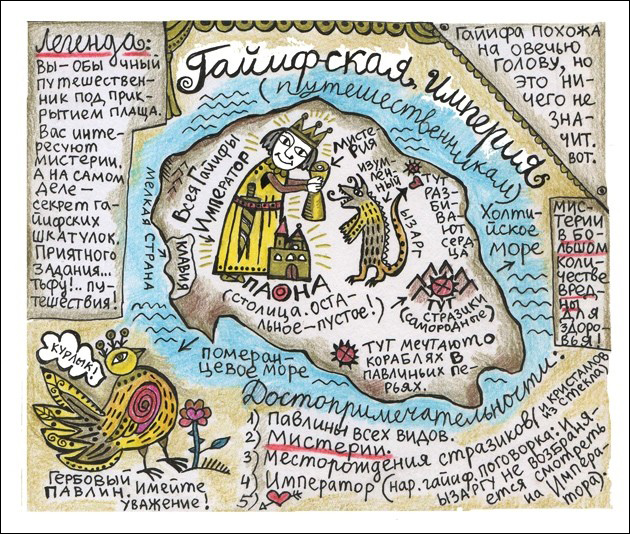 Легенда:
Вы – обычный
путешествен-
ник под прик-
рытием плаща.
Вас инте-
ресуют
мистерии.
А на самом
деле –
секрет га-
йифских
шкатулок.
Приятного
задания...
Тьфу!.. пу-
тешествия!
Гайифская империя
(путешественникам)
Гайифа похожа
на овечью
голову, но
это ни-
чего не
зна-
чит.
вот.
Мистерии
в боль-
шом
коли-
честве
вред-
ны
для
здоро-
вья!
Холтий-
ское
море
Мелкая страна
Клавия
Всея Гайифы
Император
Мисте-
рия
Изум-
ленный
ызарг
Тут
раз-
би-
ва-
ют
серд-
ца
Паона
(столица. Оста-
льное – пустое!)
Тут
стразики
(самородные)
Тут мечтают о
кораблях в
павлиньих пе-
рьях.
Померан-
цевое море
Курлык!
Гербовый
павлин. Имейте
уважение!
Достопримечательности:
1) Павлины всех видов.
2) Мистерии.
3) Месторождения стразиков (и кристаллов из стекла)
4) Император (нар. гайиф. поговорка: И
ызаргу не возбраня-
ется смотреть
на Импера-
тора)
5)